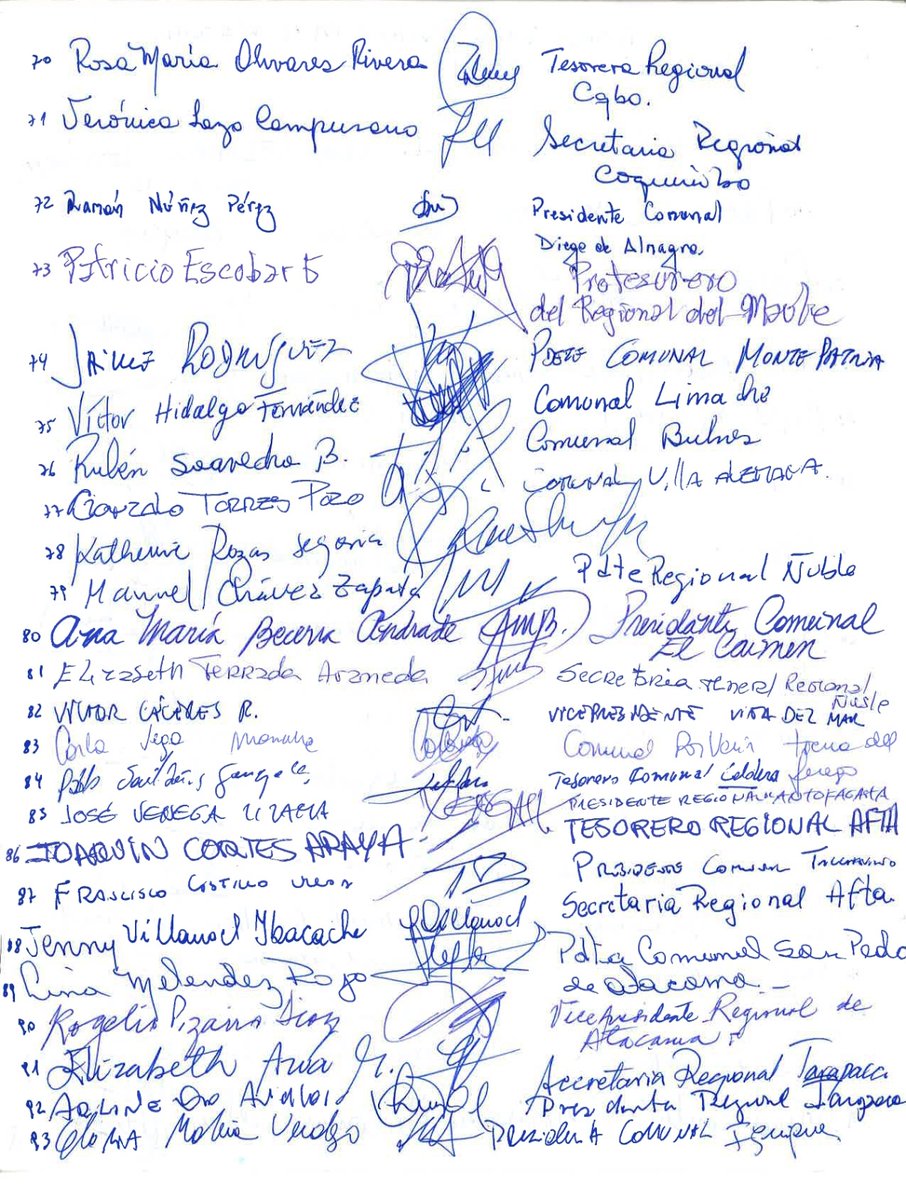 70 Rosa María Olivares Rivera Tesorera Regional
Cqbo.
71 Verónica Lazo Campusano Secretaria Regional
Coquimbo
72 Ramón Núñez Pérez Presidente Comunal
Diego de Almagro.
73 Patricio Escobar Protesorero
del Regional del Maule
74 Jaime Rodriguez Pdete Comunal Monte Patria
75 Víctor Hidalgo Fernández Comunal Limache
76 Rubén Saavedra B. Comunal Bulnes
77 Gonzalo Torres Pozo Comunal Villa Alemana.
78 Katherine Rozas Segovia
79 Manuel Chávez Zapata Pdte Regional Ñuble
80 Ana María Becerra Andrade Presidente Comunal
El Carmen
81 Elizabeth Terrada Araneda Secretaria General Regional
Ñuble
82 VICTOR CÁCERES R. VICEPRESIDENTE VIÑA DEL
MAR
83 Carla Vega Comunal Porvenir tierra del
fuego
84 Pablo Tesorero Comunal Caldera
85 JOSÉ VENEGA PRESIDENTE REGIONAL ANTOFAGASTA
86 JOAQUIN CORTES ARAYA TESORERO REGIONAL AFTA
87 FRANCISCO CASTILLO Presidente Comunal
88 Jenny Villanoel Ibacache Secretaria Regional Afta.
89 Lina Melendez Rojo Pdta Comunal San Pedro
de atacama.
90 Rogelio Pizarro Vicepresidente Regional de
Atacama
91 Elizabeth M. Secretaria Regional Tarapaca
92 Presidenta Regional Tarapaca
93 Verdugo Presidenta Comunal Iquique